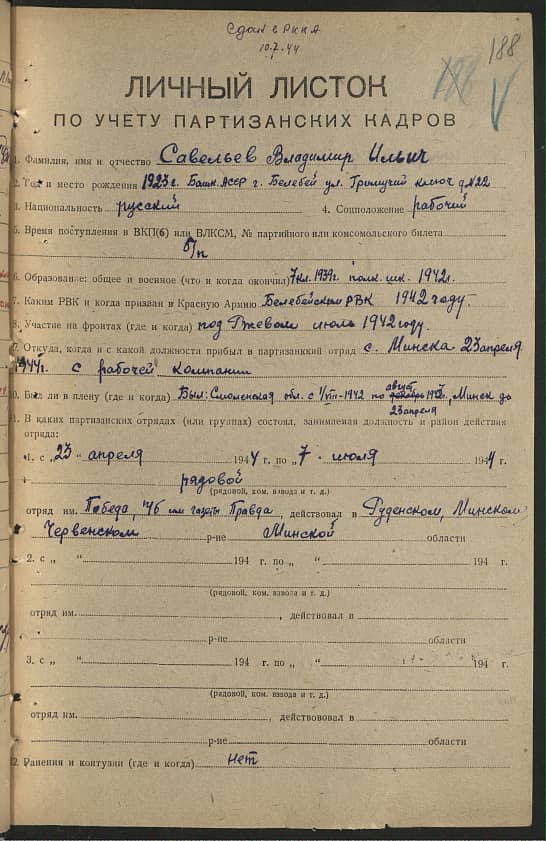 Сдан в РККА
10.7.44
188
ЛИЧНЫЙ ЛИСТОК
ПО УЧЕТУ ПАРТИЗАНСКИХ КАДРОВ
1. Фамилия, имя и отчество Савельев Владимир Ильич
2. Год и место рождения 1923 г. Башк. АССР г. Белебей ул. Гремучий ключ д №22
3. Национальность русский 4. Соцположение рабочий
5. Время поступления в ВКП(б) или ВЛКСМ, № партийного или комсомольского билета
б/п
6. Образование: общее и военное (что и когда окончил) 7 кл. 1939г. полк. шк. 1942г.
7. Каким РВК и когда призван в Красную Армию Белебейским РВК 1942 году.
8. Участие на фронтах (где и когда) под Ржевом июль 1942 году.
9. Откуда, когда и с какой должности прибыл в партизанский отряд с. Минска 23 апреля
1944г. с рабочей компании
август
10. Был ли в плену (где и когда) Был: Смоленская обл. с 1/VIII-1942 по 1943г., Минск до
23 апреля
11. В каких партизанских отрядах (или группах) состоял, занимаемая должность и район действия
отряда:
1. с „ 23 “ апреля 1944 г. по „ 7 “ июля 1944 г.
рядовой
(рядовой, ком. взвода и т. д.)
отряд им. Победа, газеты Правда, действовал в Руденском, Минском
Червенском р-не Минской области
2. с „ “ 194 г. по „ “ 194 г.
(рядовой, ком. взвода и т. д.)
отряд им. , действовал в
р-не области
3. с „ “ 194 г. по „ “ 194 г.
(рядовой, ком. взвода и т. д.)
отряд им. , действовал в
р-не области
2. Ранения и контузии (где и когда) нет